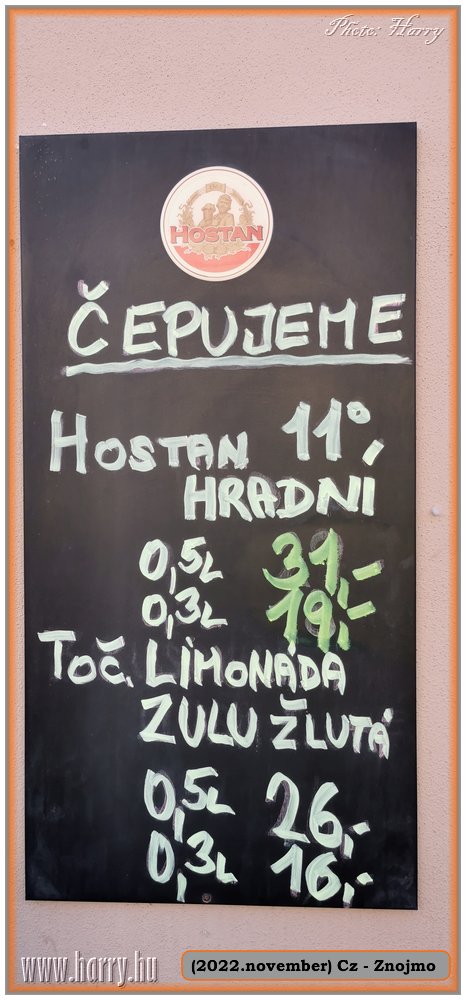 Photo: Harry
HOSTAN
ČEPUJEME
HOSTAN 11°,
HRADNÍ
0,5L 31,-
0,3L 19,-
TOČ. LIMONÁDA
ZULU ŽLUTÁ
0,5L 26,-
0,3L 16,-
www.harry.hu
(2022.november) Cz - Znojmo